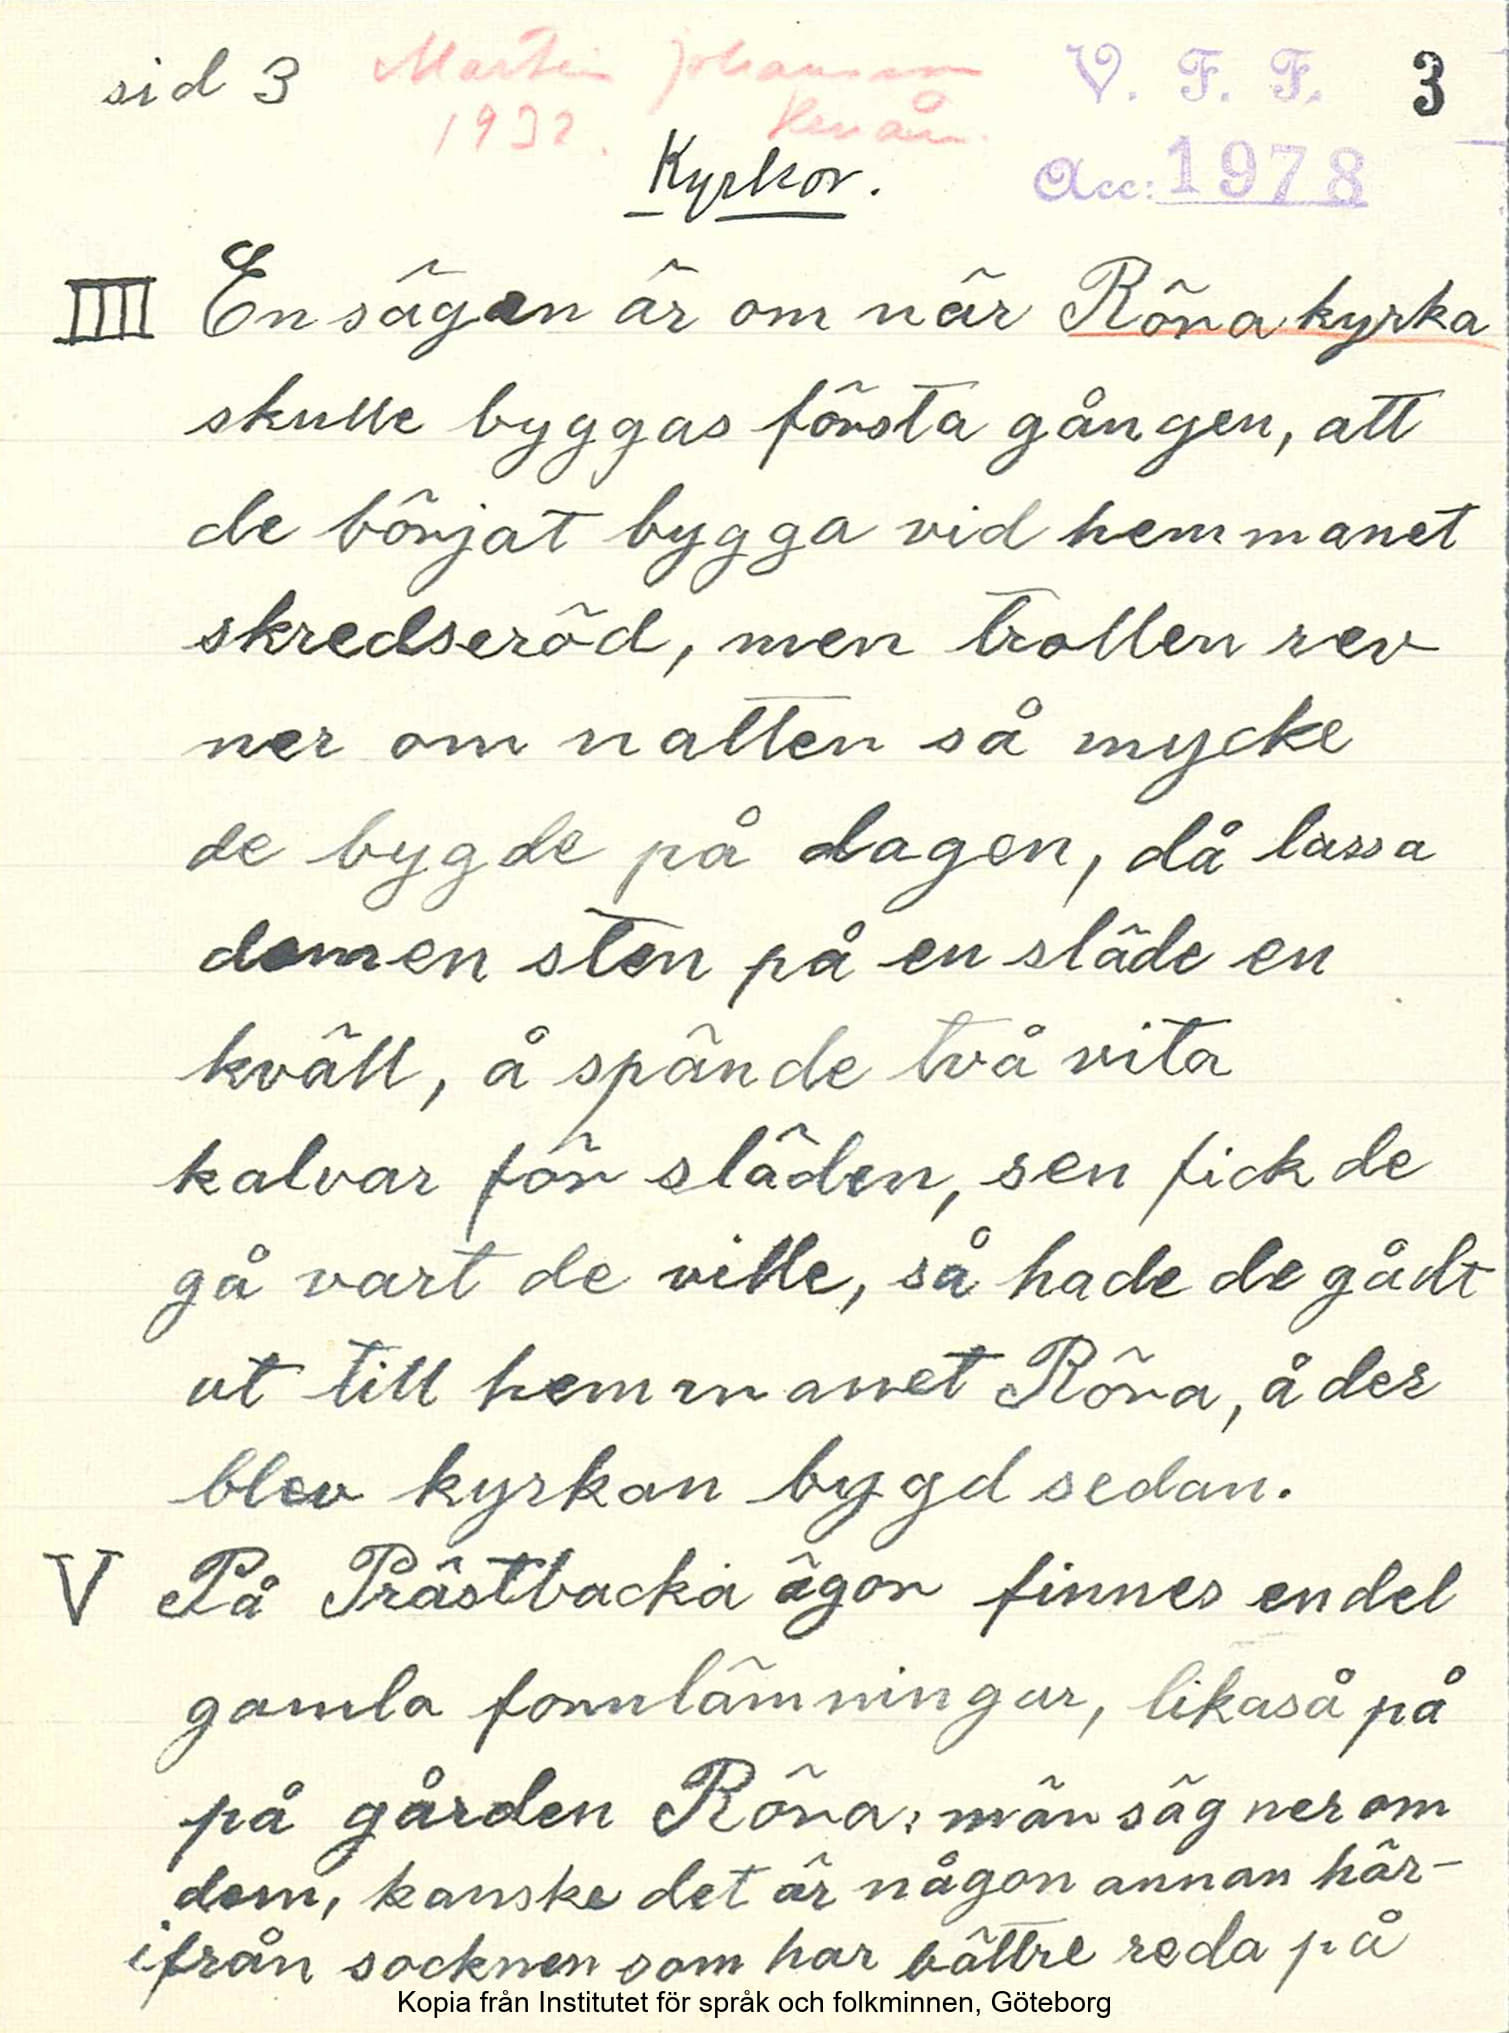 sid 3 Martin Johansson V. F. F. 3
1932. Henån.
Kyrkor. Acc: 1978
III En sägen är om när Röra kyrka
skulle byggas första gången, att
de börjat bygga vid hemmanet
skredseröd, men trollen rev
ner om natten så mycke
de bygde på dagen, då lassa
dem en sten på en släde en
kväll, å spände två vita
kalvar för släden, sen fick de
gå vart de ville, så hade de gådt
ut till hemmanet Röra, å der
blev kyrkan bygd sedan.
V På Prästbacka ägor finnes en del
gamla fornlämningar, likaså på
på gården Röra; män säg ner om
dem, kanske det är någon annan här-
ifrån socknen som har bättre reda på
Kopia från Institutet för språk och folkminnen, Göteborg